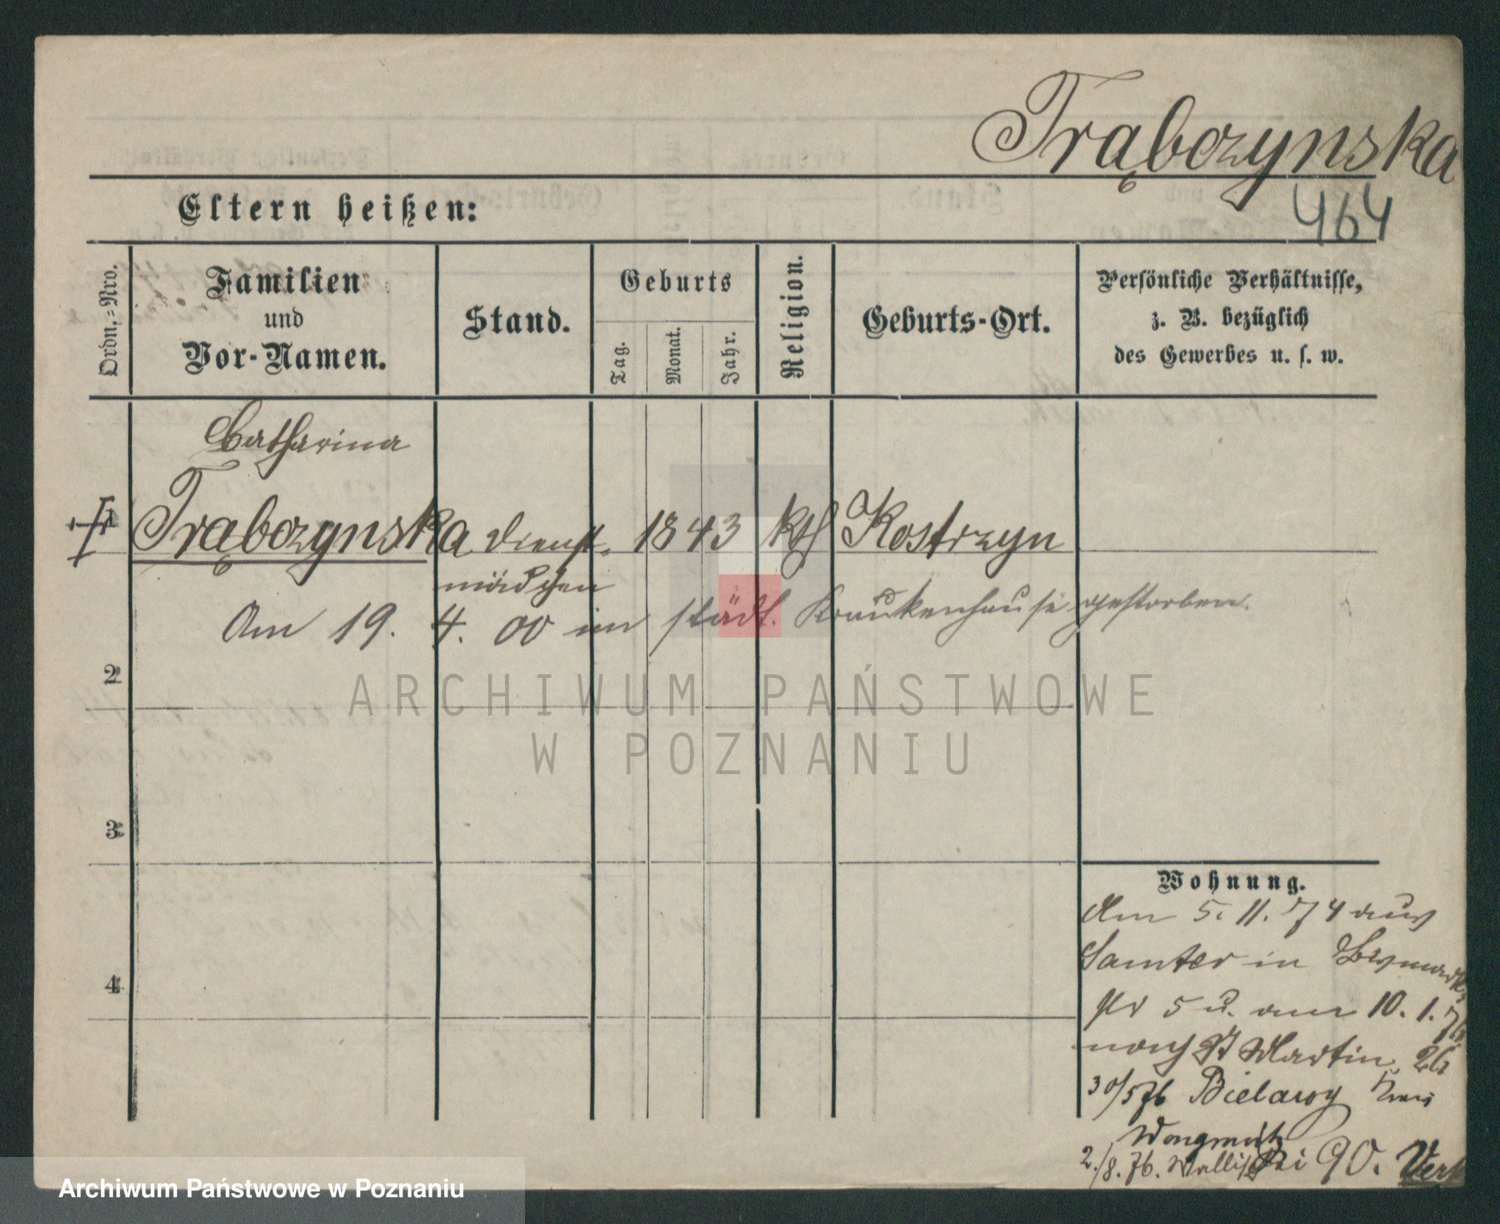 Trąbczynska
464
Eltern heißen:
Ordn.-Nro.
Familien
und
Vor-Namen.
Stand.
Geburts
Tag.
Monat.
Jahr.
Religion.
Geburts-Ort.
Persönliche Verhältnisse,
z. B. bezüglich
des Gewerbes u. s. w.
Catharina
1 Trąbczynska Dienst- 1843 kth Kostrzyn
mädchen
Am 19. 4. 00 im städt. Krankenhause gestorben.
2
ARCHIWUM PAŃSTWOWE
W POZNANIU
3
4
Wohnung.
Am 5. 11. 74 aus
Samter in
5 u. am 10. 1. 76
nach St Martin 26
30/5 76 Bielawy Kreis
Wongrowitz
2./8. 76. Wallischei 90.
Archiwum Państwowe w Poznaniu